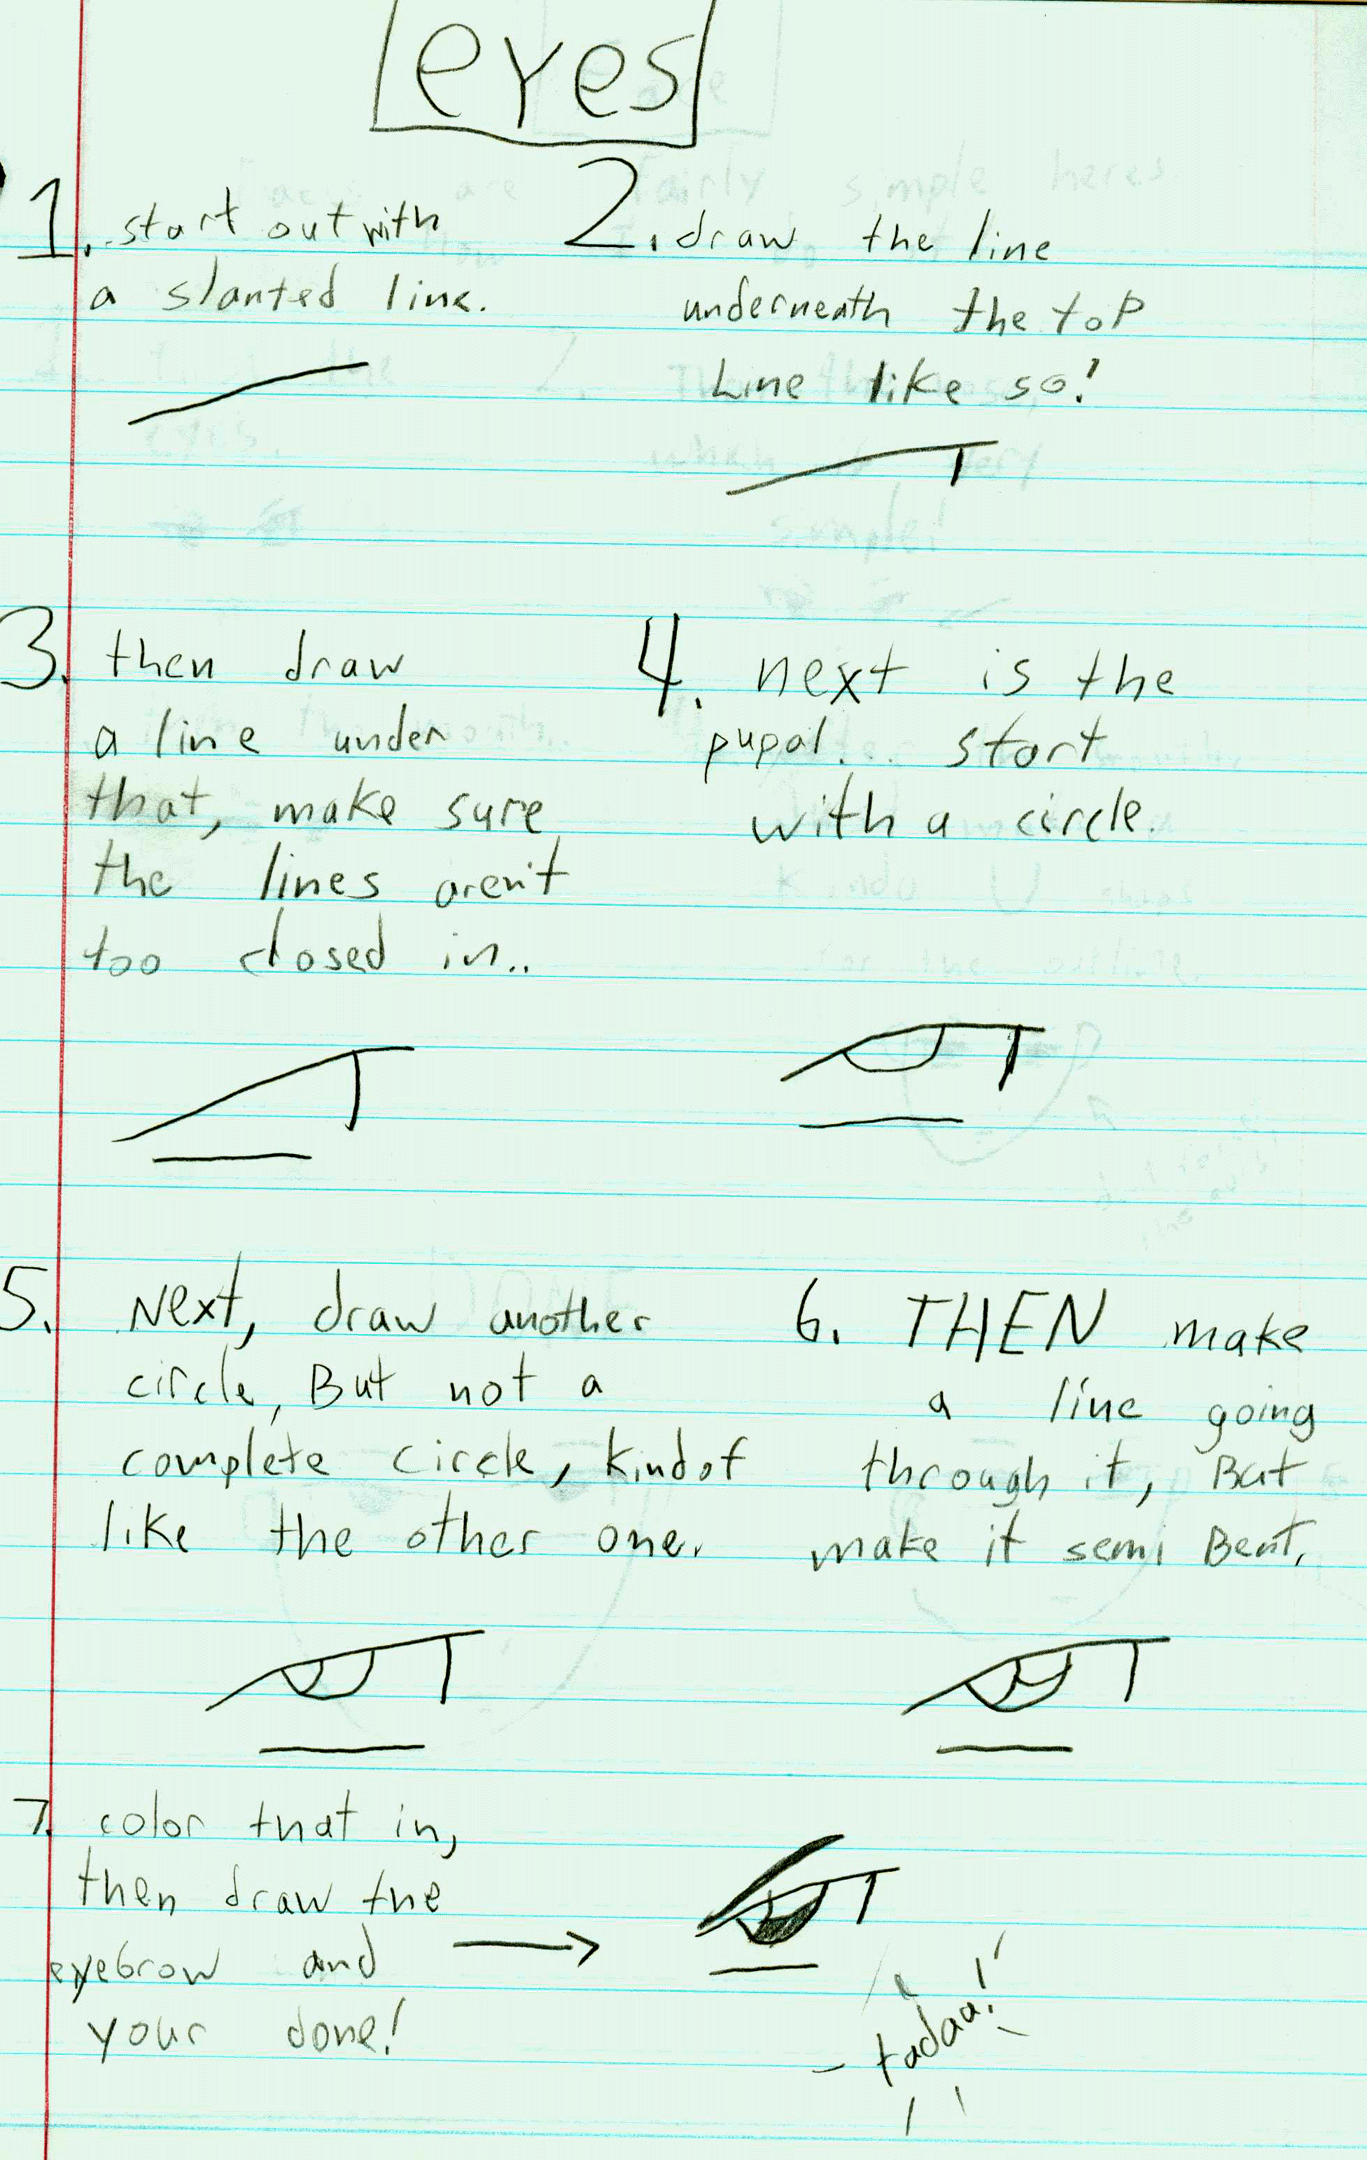 eyes
1. start out with
a slanted line.
2. draw the line
underneath the top
Line like so!
3. then draw
a line under
that, make sure
the lines aren't
too closed in..
4. next is the
pupal.. start
with a circle.
5. Next, draw another
circle, But not a
complete circle, kindof
like the other one.
6. THEN make
a line going
through it, But
make it semi Bent.
7. color that in,
then draw the
eyebrow and
your done!
tadaa!